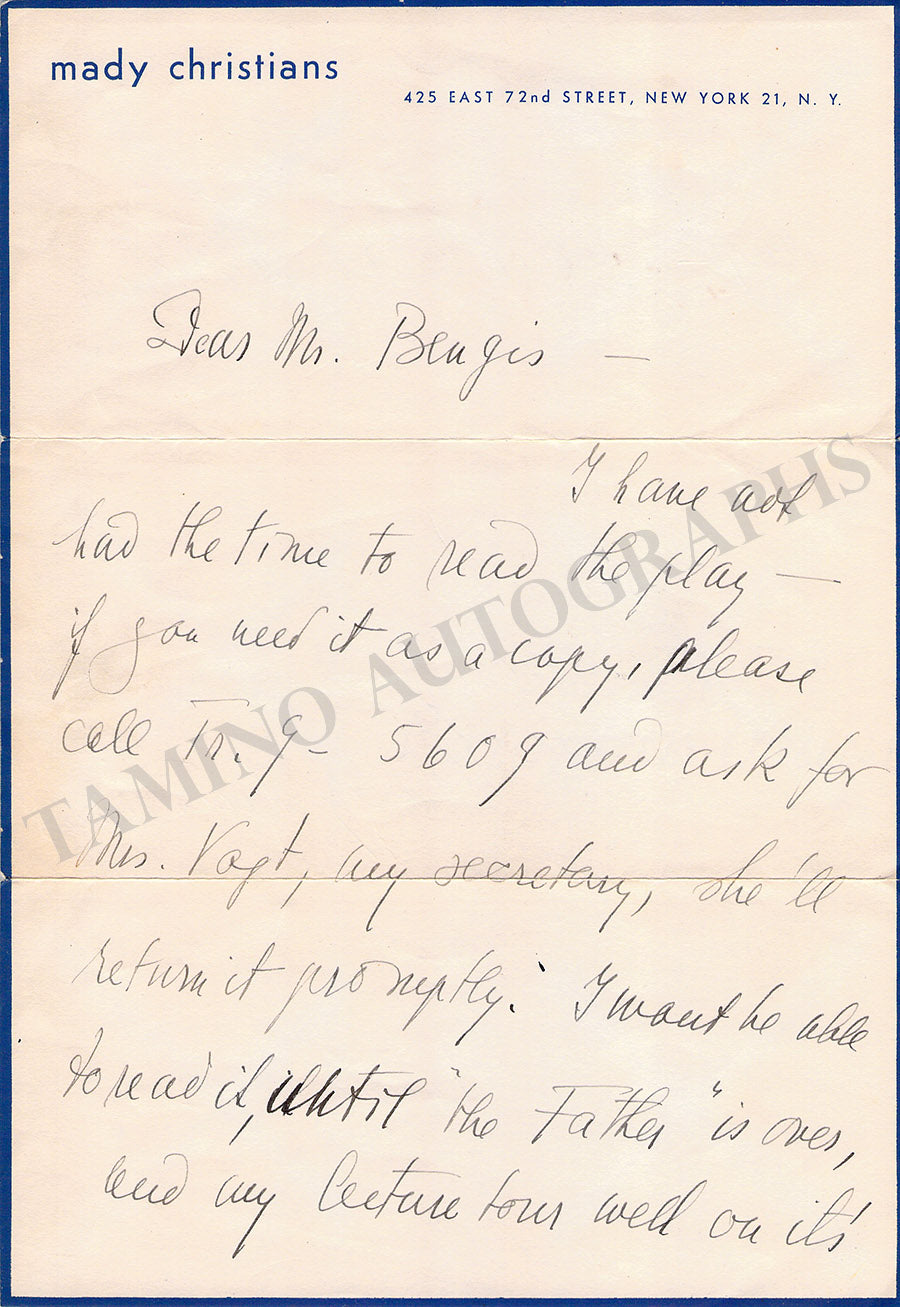 mady christians
425 EAST 72nd STREET, NEW YORK 21, N. Y.
Dear Mr. Bengis —
I have not
had the time to read the play —
if you need it as a copy, please
call Tr. 9- 5609 and ask for
Mrs. Vogt, my secretary, she'll
return it promptly. I wont be able
to read it, until "the Father" is over,
and my lecture tour well on it's
TAMINO AUTOGRAPHS